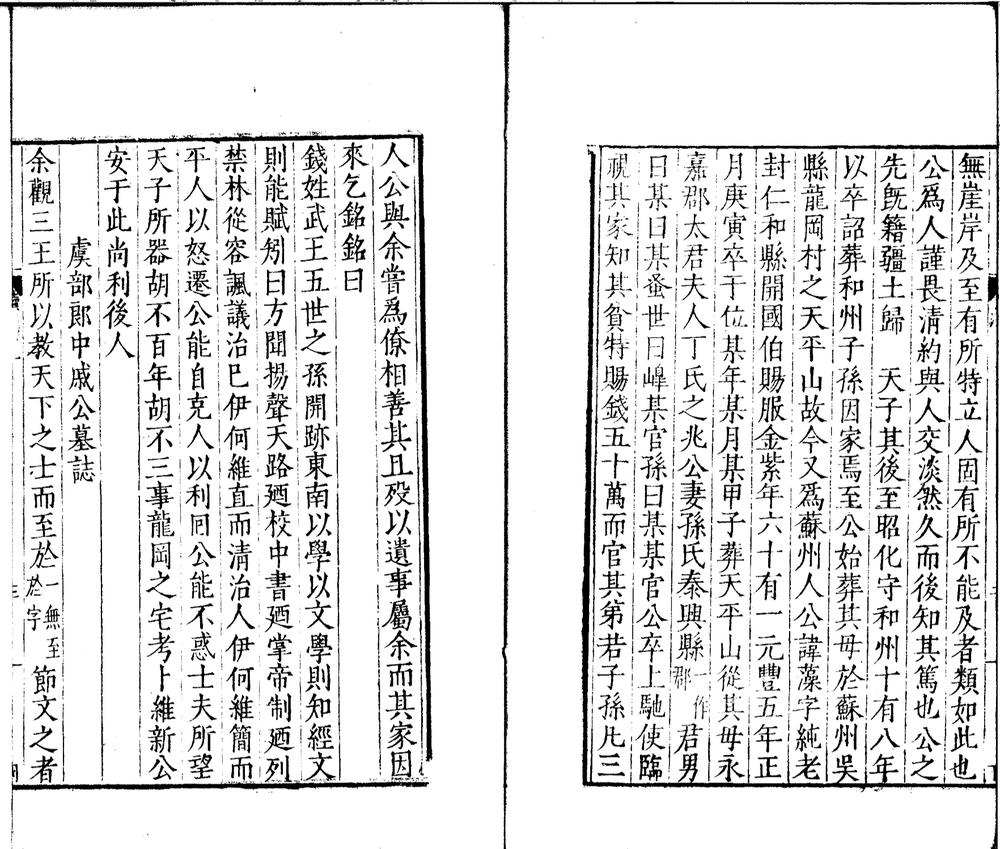 無崖岸及至有所特立人固有所不能及者類如此也
公爲人謹畏清約與人交淡然久而後知其篤也公之
先旣籍疆土歸　天子其後至昭化守和州十有八年
以卒詔葬和州子孫因家焉至公始葬其母於蘇州吳
縣龍岡村之天平山故今又爲蘇州人公諱藻字純老
封仁和縣開國伯賜服金紫年六十有一元豐五年正
月庚寅卒于位某年某月某甲子葬天平山從其母永
嘉郡太君夫人丁氏之兆公妻孫氏秦興縣一作郡君男
曰某曰某蚤世曰峰某官孫曰某某官公卒上馳使臨
視其家知其貧特賜錢五十萬而官其第若子孫凡三
人公與余嘗爲僚相善其且殁以遺事屬余而其家因
來乞銘銘曰
錢姓武王五世之孫開跡東南以學以文學則知經文
則能賦矧曰方聞揚聲天路廼校中書廼掌帝制廼列
禁林從容諷議治巳伊何維直而淸治人伊何維簡而
平人以怒遷公能自克人以利囘公能不惑士夫所望
天子所器胡不百年胡不三事龍岡之宅考卜維新公
安于此尚利後人
虞部郎中戚公墓誌
余觀三王所以教天下之士而至於一無至於字節文之者